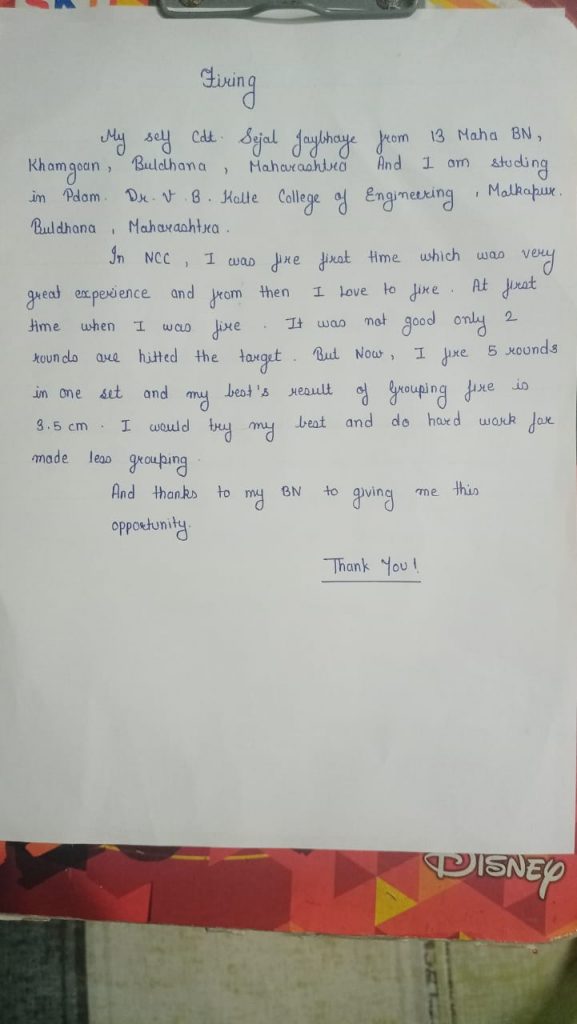 Firing
My self Cdt. Sejal Jaybhaye from 13 Maha BN,
Khamgoan, Buldhana, Maharashtra And I am studing
in Pdam. Dr. V. B. Kolte College of Engineering, Malkapur.
Buldhana, Maharashtra.
In NCC, I was fire first time which was very
great experience and from then I Love to fire. At first
time when I was fire. It was not good only 2
rounds are hitted the target. But Now, I fire 5 rounds
in one set and my best's result of Grouping fire is
3.5 cm. I would try my best and do hard work for
made less grouping.
And thanks to my BN to giving me this
opportunity.
Thank You!
DISNEY